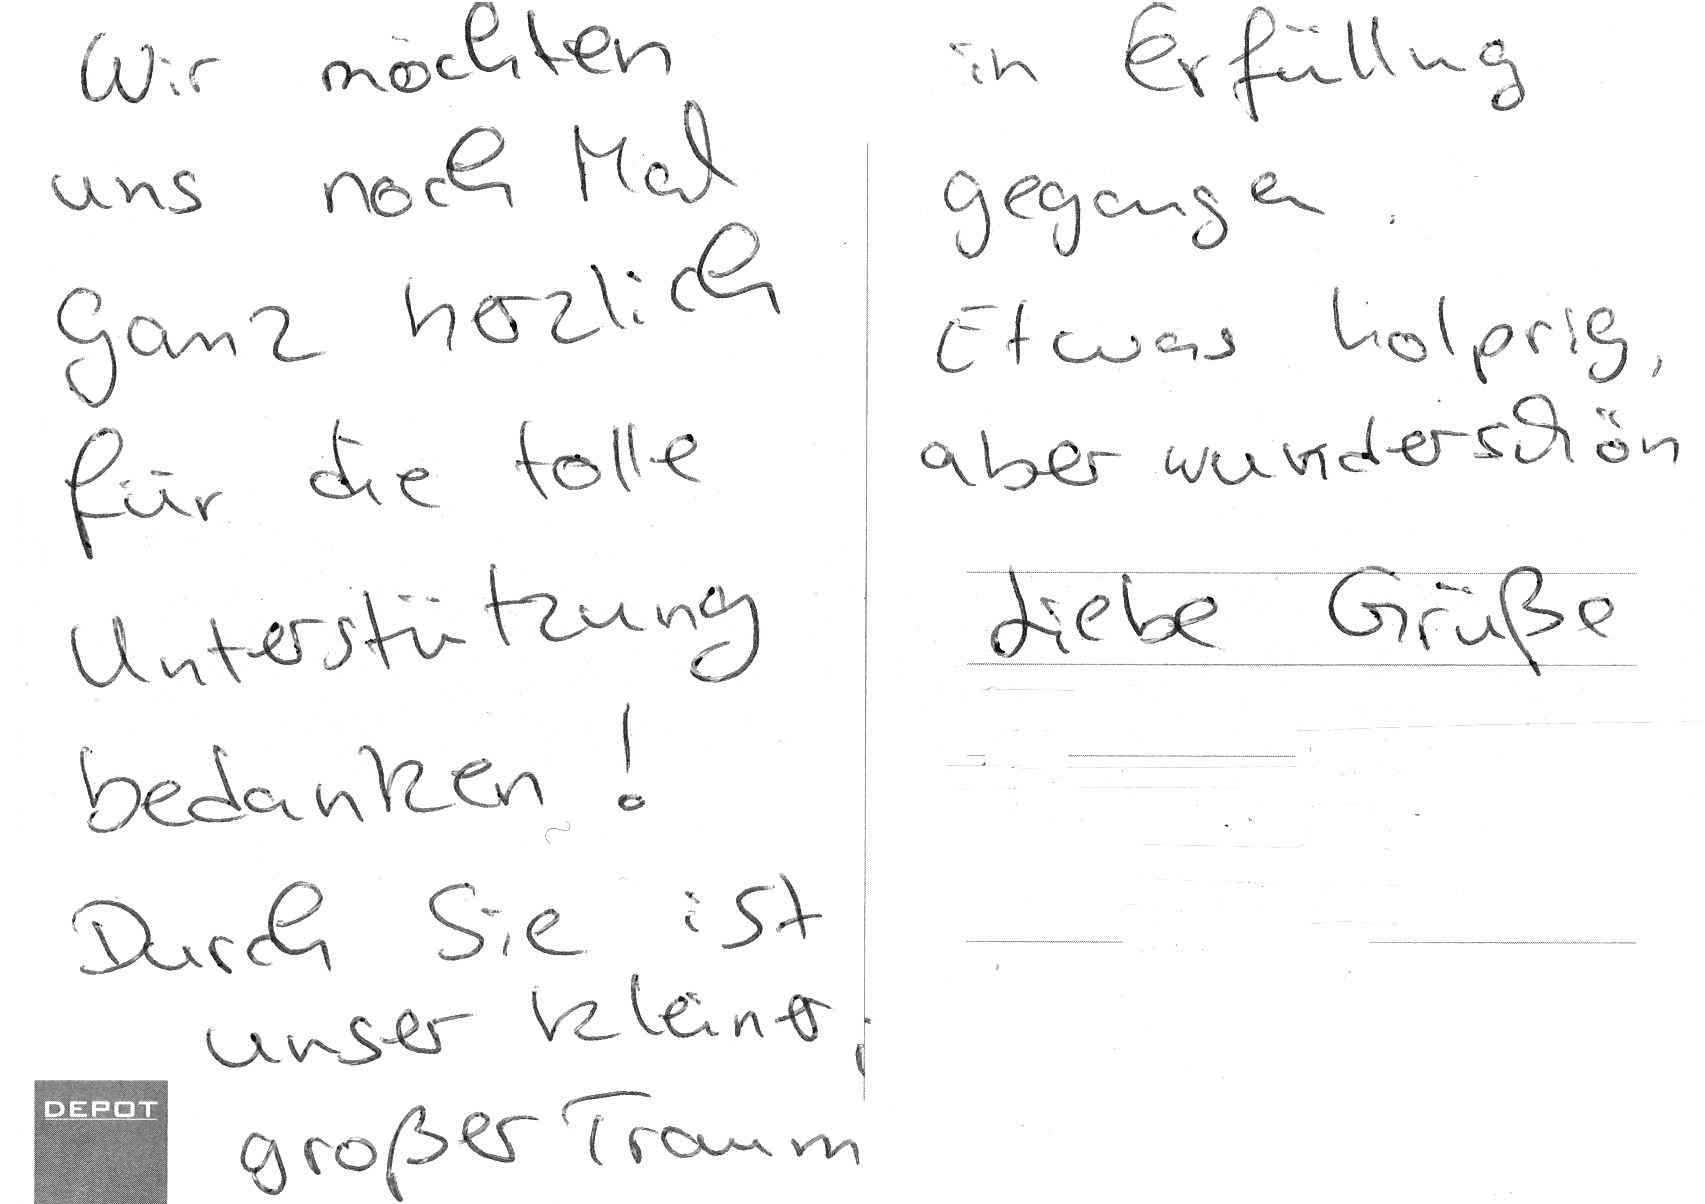 Wir möchten
uns noch Mal
ganz herzlich
für die tolle
Unterstützung
bedanken!
Durch Sie ist
unser kleiner,
großer Traum
DEPOT
in Erfüllung
gegangen.
Etwas holprig,
aber wunderschön
Liebe Grüße